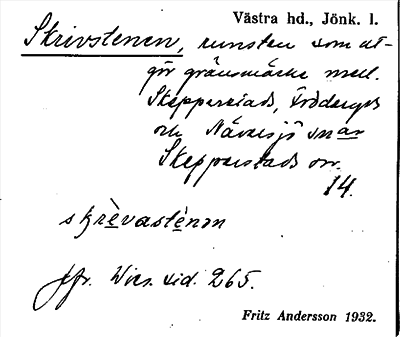 Västra hd., Jönk. l.
Skrivstenen, runsten som ut-
gör gränsmärke mell.
Skepperstads, Fröderyds
och Näversjö snar
Skepperstads sn.
14.
skrèvastènən
Jfr. Wies. sid. 265.
Fritz Andersson 1932.